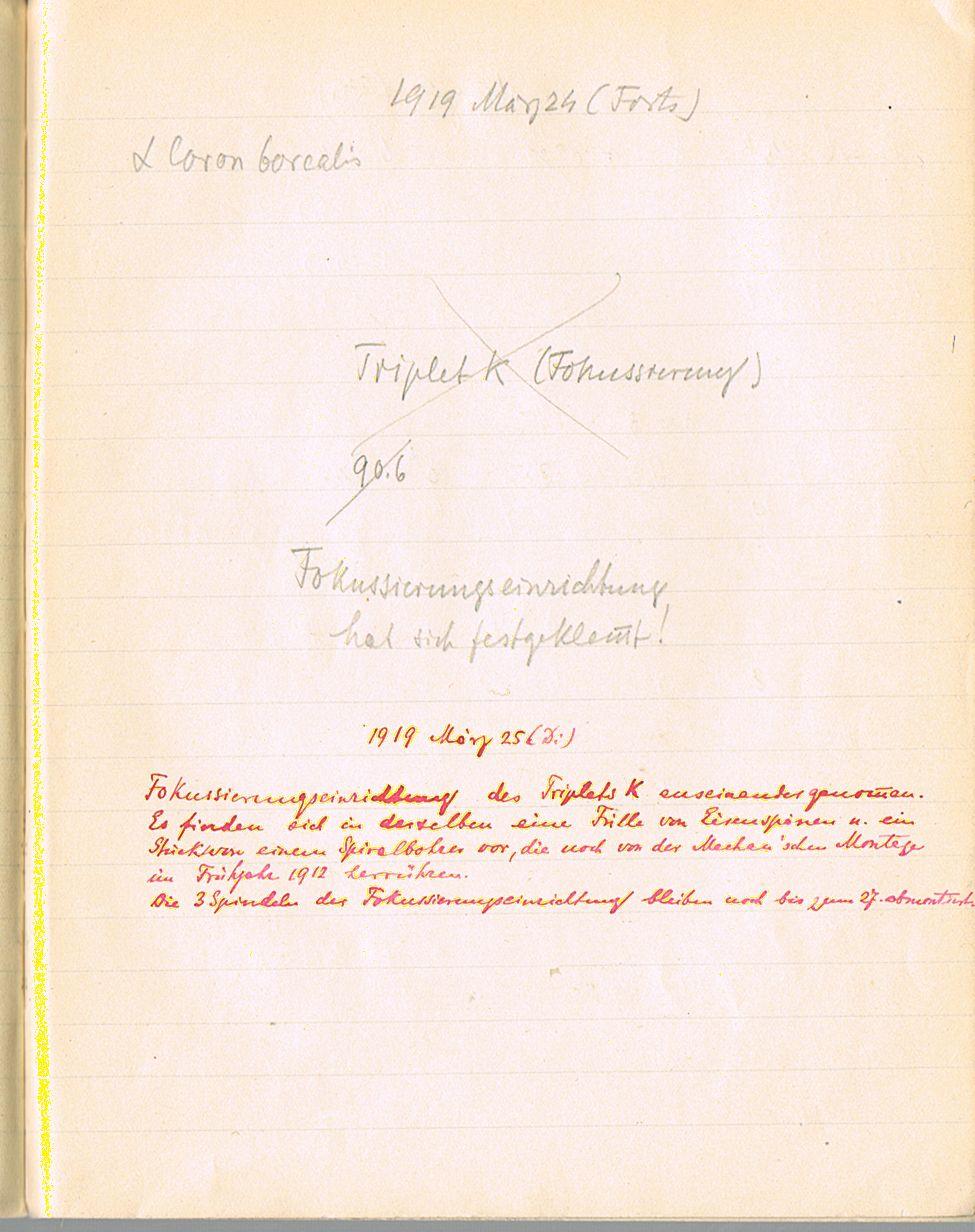 1919 März 24 (Forts)
α Coron borealis
Triplet K (Fokussierung)
90.6
Fokussierungseinrichtung
hat sich festgeklem̄t!
1919 März 25 (Di)
Fokussierungseinrichtung des Triplets K auseinandergenom̄en.
Es finden sich in derselben eine Fülle von Eisenspänen u. ein
Stück von einem Spiralbohrer vor, die noch von der Montage
im Frühjahr 1912 herrühren.
Die 3 Spindeln der Fokussierungseinrichtung bleiben noch bis zum 27. abmontiert.